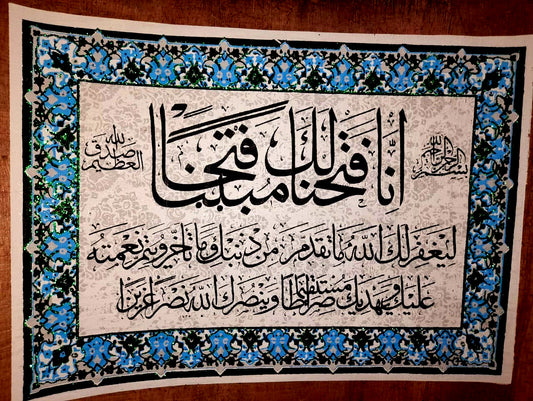 بسم الله الرحمن الرحيم
إنا فتحنا لك فتحا مبينا
صدق الله العظيم
ليغفر لك الله ما تقدم من ذنبك وما تأخر ويتم نعمته
عليك ويهديك صراطا مستقيما وينصرك الله نصرا عزيزا